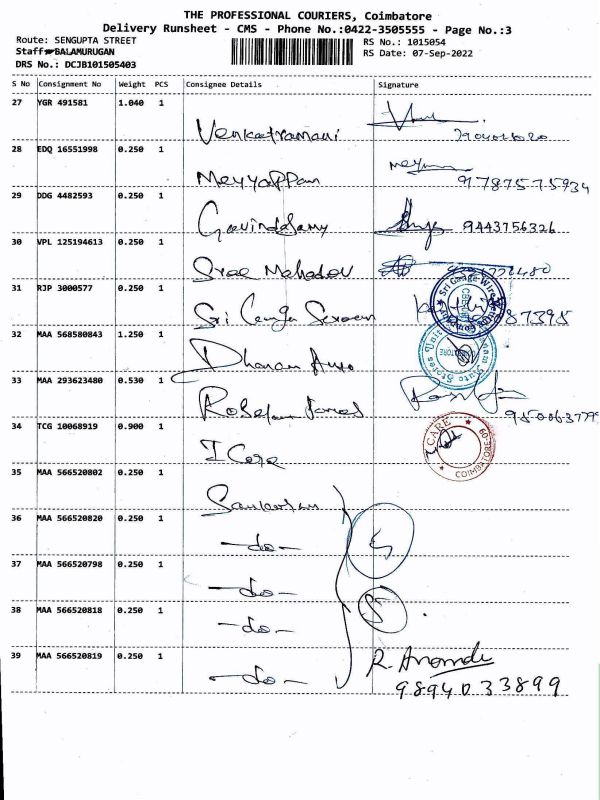 THE PROFESSIONAL COURIERS, Coimbatore
Delivery Runsheet - CMS - Phone No.:0422-3505555 - Page No.:3
Route: SENGUPTA STREET
RS No.: 1015054
Staff BALAMURUGAN
RS Date: 07-Sep-2022
DRS No.: DCJB101505403
S No Consignment No Weight PCS Consignee Details Signature
27 YGR 491581 1.040 1
Venkatramani
28 EDQ 16551998 0.250 1
Meyyappan
91787575934
29 DDG 4482593 0.250 1
Govindasamy 9443756326
30 VPL 125194613 0.250 1
Sree Mahadev
31 RJP 3000577 0.250 1
Sri Ganga Screen 87395
32 MAA 568580843 1.250 1
Dhanam Auto
33 MAA 293623480 0.530 1
34 TCG 10068919 0.900 1
I Care
CARE
COIMBATORE
35 MAA 566520802 0.250 1
Sankaran
36 MAA 566520820 0.250 1
-do- 5
37 MAA 566520798 0.250 1
-do-
38 MAA 566520818 0.250 1
-do- 5
39 MAA 566520819 0.250 1
-do- R. Anand
9894033899